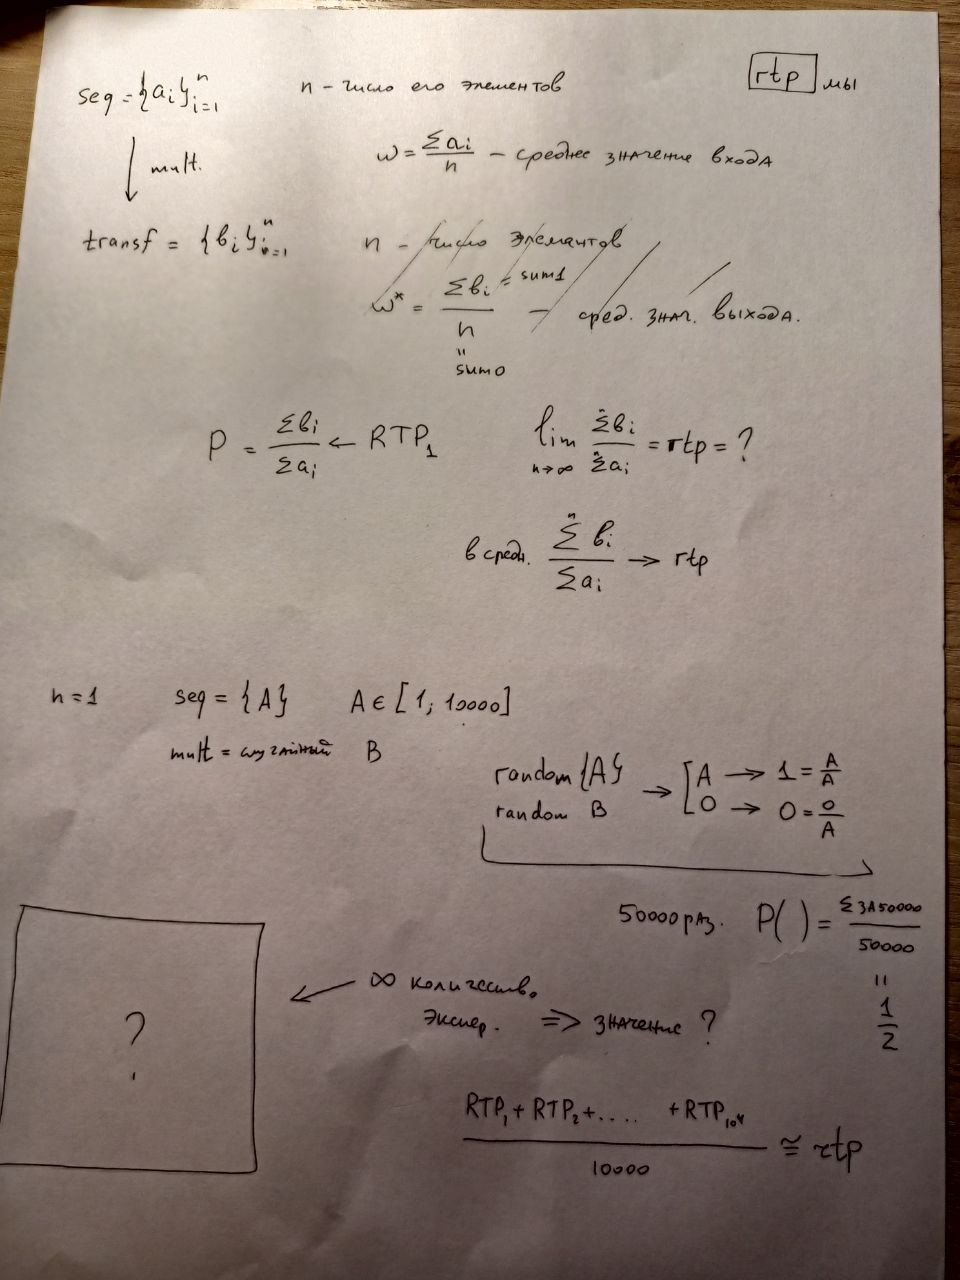 seq = {a_i}_{i=1}^n   n - число его элементов   rtp мы
mult.   ω = Σa_i / n - среднее значение входа
transf = {в_i}_{i=1}^n   n - число элемантов
ω* = Σв_i / n - сред. знач. выхода.
= sum1
"
sum0
P = Σв_i / Σa_i ← RTP_1   lim_{n→∞} Σ^n в_i / Σ^n a_i = rtp = ?
в средн. Σ^n в_i / Σa_i → rtp
n = 1   seq = {A}   A ∈ [1; 10000]
mult = случайный B
random {A} → [A → 1 = A/A
random B   0 → 0 = 0/A
50000 раз. P( ) = Σ за 50000 / 50000
"
1/2
?
← ∞ количеств.
экспер. => значение ?
RTP_1 + RTP_2 + .... + RTP_{10^4} / 10000 ≅ rtp